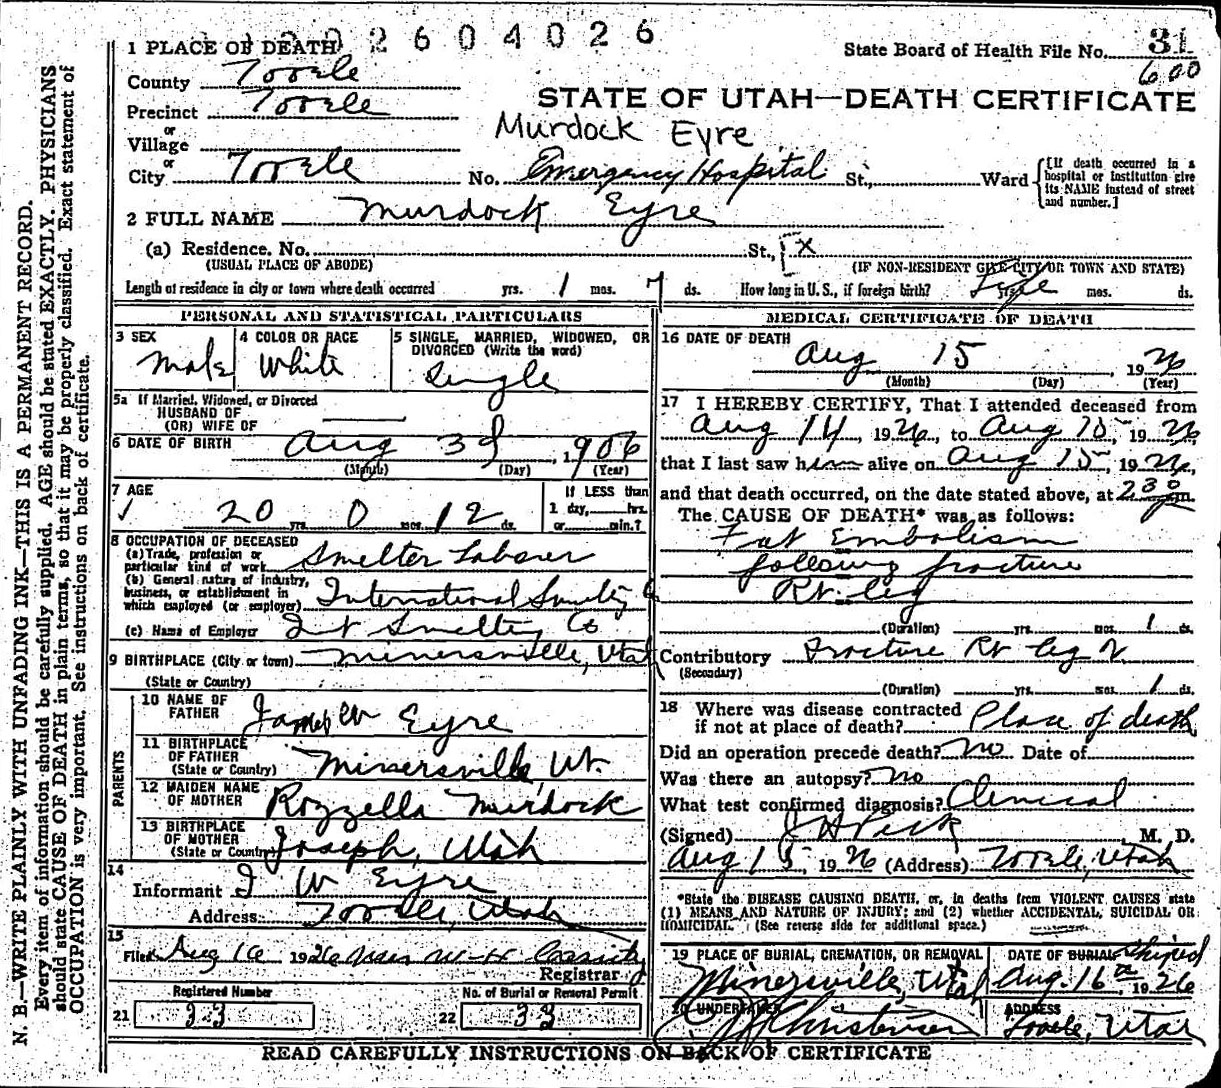 2604026
1 PLACE OF DEATH
State Board of Health File No. 31
600
County Tooele
Precinct Tooele
STATE OF UTAH—DEATH CERTIFICATE
Murdock Eyre
or
Village
or
City Tooele No. Emergency Hospital St., Ward
[If death occurred in a hospital or institution give its NAME instead of street and number.]
2 FULL NAME Murdock Eyre
(a) Residence. No. St., X
(USUAL PLACE OF ABODE) (IF NON-RESIDENT GIVE CITY OR TOWN AND STATE)
Length of residence in city or town where death occurred yrs. 1 mos. 7 ds. How long in U.S., if foreign birth? mos. ds.
PERSONAL AND STATISTICAL PARTICULARS
3 SEX
Male
4 COLOR OR RACE
White
5 SINGLE, MARRIED, WIDOWED, OR DIVORCED (Write the word)
Single
5a If Married, Widowed, or Divorced
HUSBAND OF
(OR) WIFE OF
6 DATE OF BIRTH Aug 3d, 1906
(Month) (Day) (Year)
7 AGE
20 yrs. 0 mos. 12 ds.
If LESS than
1 day, hrs.
or min.?
8 OCCUPATION OF DECEASED
(a) Trade, profession or
particular kind of work Smelter Laborer
(b) General nature of industry,
business, or establishment in
which employed (or employer) International Smelting Co
(c) Name of Employer Int Smelting Co
9 BIRTHPLACE (City or town) Minersville, Utah
(State or Country)
PARENTS
10 NAME OF
FATHER James W Eyre
11 BIRTHPLACE
OF FATHER
(State or Country) Minersville, Ut.
12 MAIDEN NAME
OF MOTHER Rozzella Murdock
13 BIRTHPLACE
OF MOTHER
(State or Country) Joseph, Utah
14
Informant J W Eyre
Address: Tooele, Utah
15
Filed Aug 16 1926 W H Cassity
Registrar
Registered Number
21 33
No. of Burial or Removal Permit
22 33
MEDICAL CERTIFICATE OF DEATH
16 DATE OF DEATH
Aug 15, 1926
(Month) (Day) (Year)
17 I HEREBY CERTIFY, That I attended deceased from
Aug 14, 1926, to Aug 15, 1926,
that I last saw him alive on Aug 15, 1926,
and that death occurred, on the date stated above, at 230 m.
The CAUSE OF DEATH* was as follows:
Fat Embolism
following fracture
Rt leg
(Duration) yrs. mos. 1 ds.
Contributory Fracture Rt leg
(Secondary)
(Duration) yrs. mos. 1 ds.
18 Where was disease contracted
if not at place of death? Place of death
Did an operation precede death? No Date of
Was there an autopsy? No
What test confirmed diagnosis? Clinical
(Signed) J H Peck M. D.
Aug 15, 1926 (Address) Tooele, Utah
*State the DISEASE CAUSING DEATH, or, in deaths from VIOLENT CAUSES state
(1) MEANS AND NATURE OF INJURY; and (2) whether ACCIDENTAL, SUICIDAL OR
HOMICIDAL. (See reverse side for additional space.)
19 PLACE OF BURIAL, CREMATION, OR REMOVAL
Minersville, Utah
DATE OF BURIAL Shiped
Aug. 16th, 1926
20 UNDERTAKER
Christensen
ADDRESS
Tooele, Utah
READ CAREFULLY INSTRUCTIONS ON BACK OF CERTIFICATE
N. B.—WRITE PLAINLY WITH UNFADING INK—THIS IS A PERMANENT RECORD.
Every item of information should be carefully supplied. AGE should be stated EXACTLY. PHYSICIANS
should state CAUSE OF DEATH in plain terms, so that it may be properly classified. Exact statement of
OCCUPATION is very important. See instructions on back of certificate.